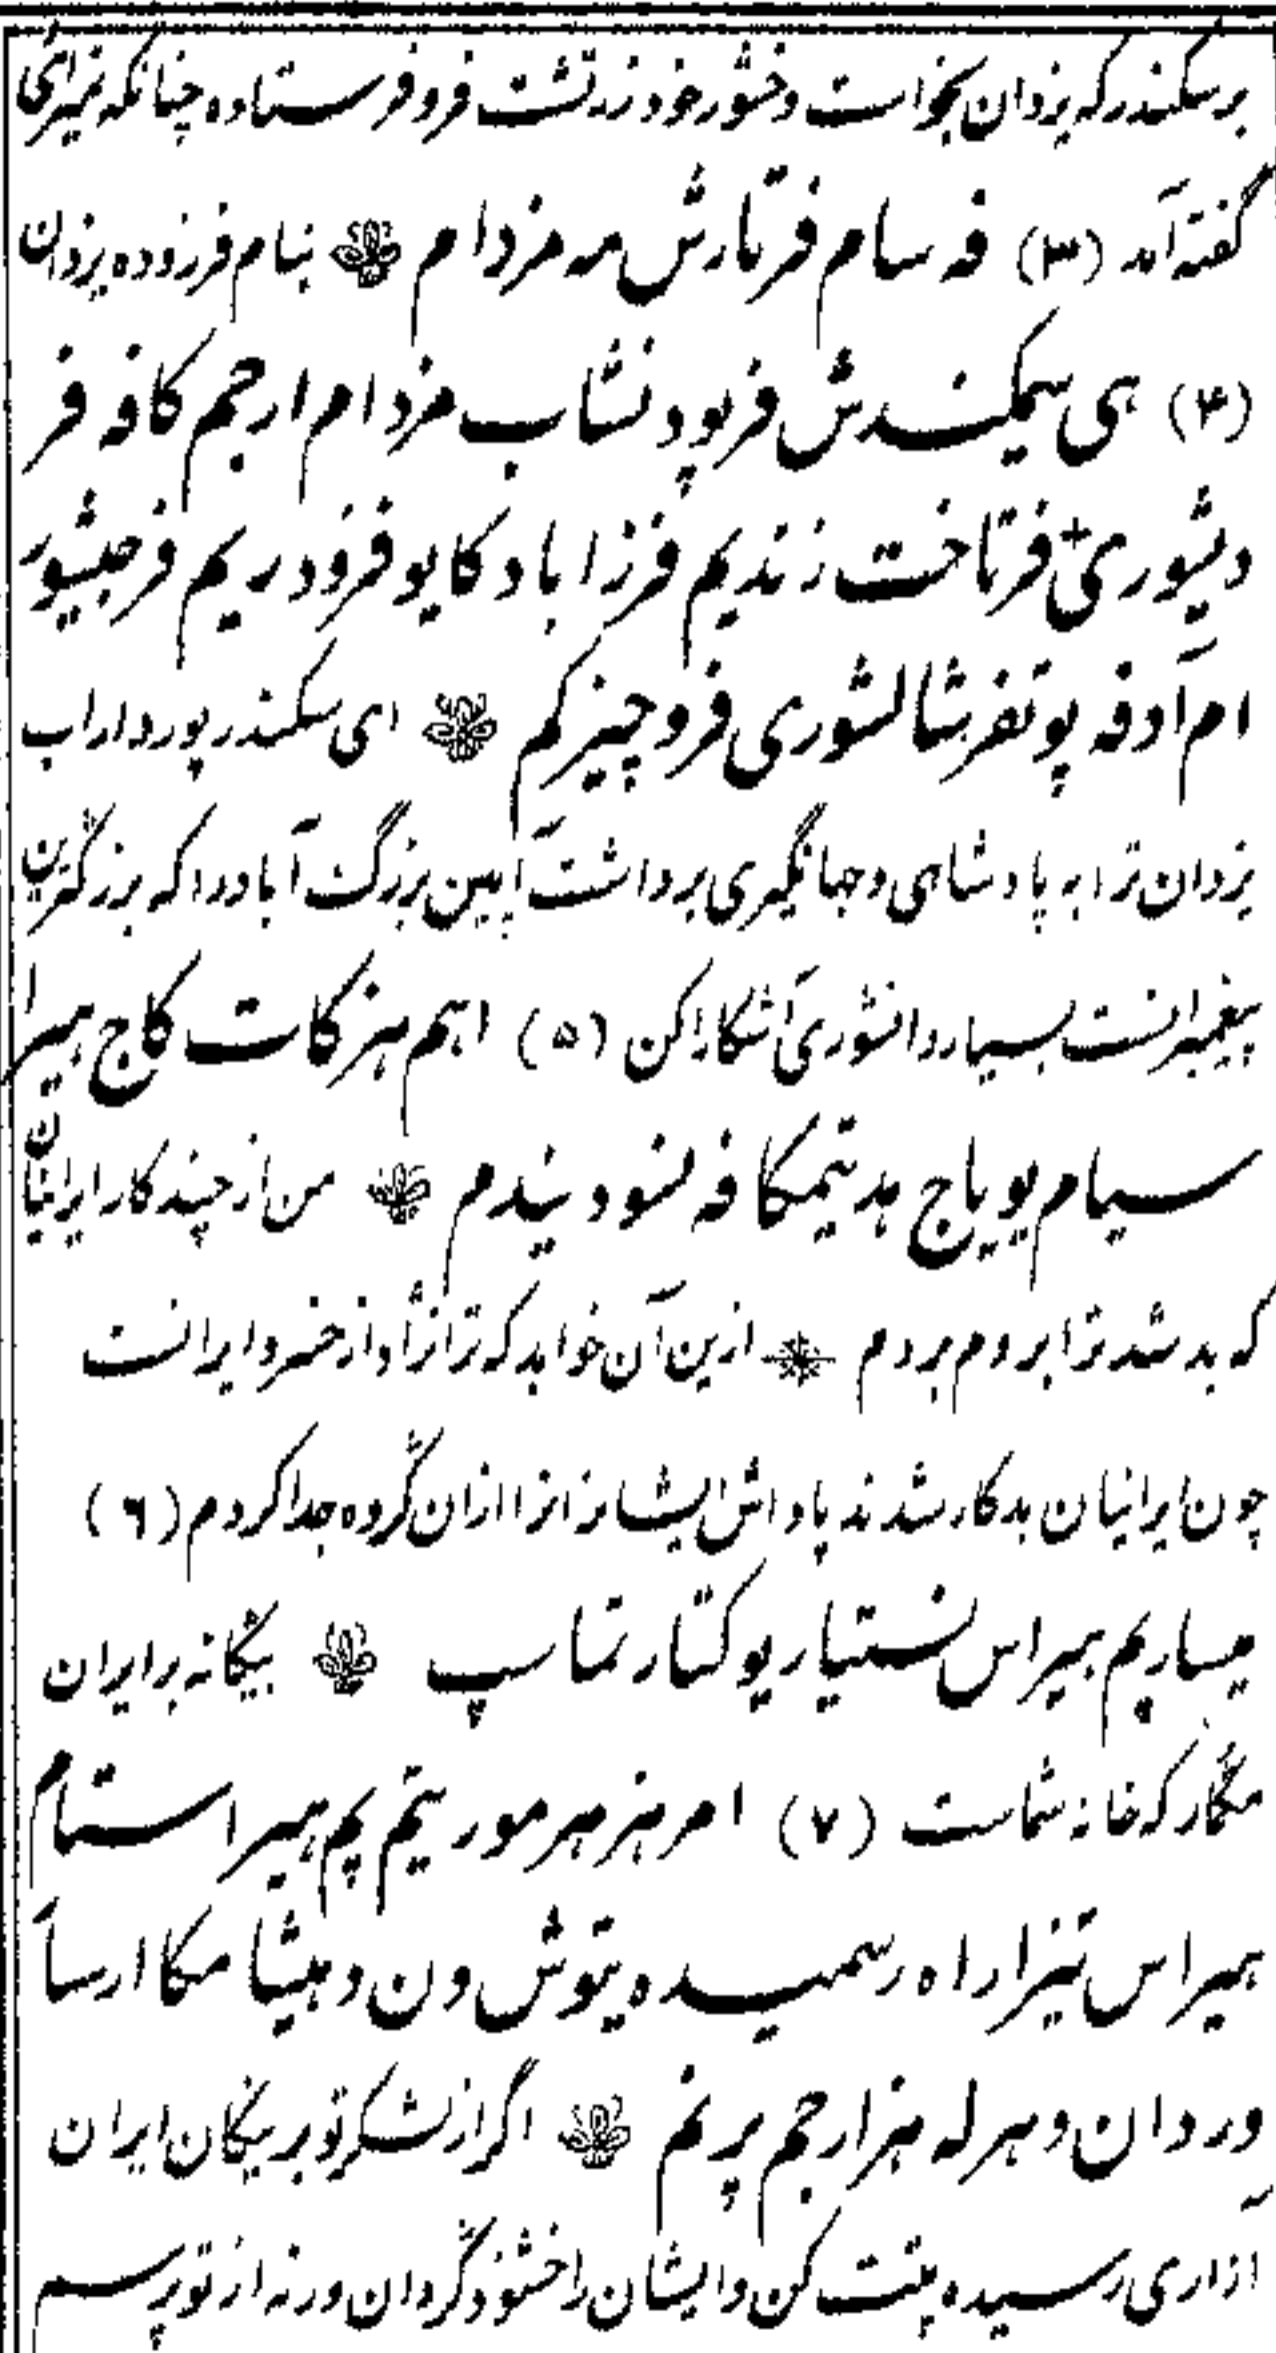 بر سکندر که یزدان بخواست وخشور خود زرتشت فرو فرستاده چنانکه
گفته آمد (۳) فه سام فرتارش مه مزدام بنام فرزوده یزدان
(۴) هی سیمکندش فرپود نشاب مزدام ارجم کافه فر
دیشوری فرتاخت زندیم فرزاباد کایو فرزودریم فرجیشور
ام آد فه پو تفرشالشوری فروچیزکم ای سکندر پور داراب
یزدان ترا به پادشاهی و جهانگیری برداشت آیین بزرگ آباد را که بزرگترین
پیغمبرانست بسیار دانشوری آشکارا کن (۵) اهم هزکات کاج هیرا
سیام یویاج هدیتمکا فه نسودیندم من از چند کار ایرانیان
که بد شد ترا بروم بردم ازین آن خواهد که ترا نژاد از خسرو ایرانست
چون ایرانیان بدکار شدند پاداش ایشانرا ترا ازان گروه جدا کردم (۶)
میساریم هیراس نستیار یو کتار تماسپ بیگانه بر ایران
مگمار که خانه شماست (۷) امر هزمرمور یتم پم هیراستام
هیراس تیزاراه رسمیده یتوش ون و هیشا مکا ارسا
وردان و هرله هزارجم پرنم اگر از لشکر تو بر نیکان ایران
آزاری رسیده پتت کن و ایشان را خشنود گردان ورنه از تو پرسم